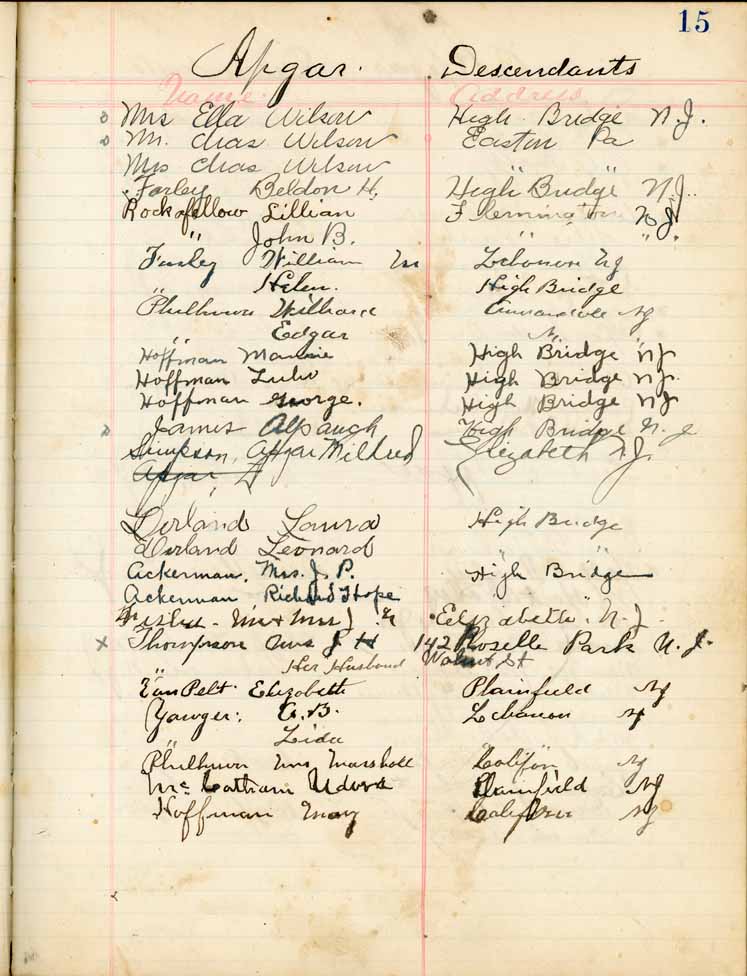 15
Apgar. Descendants
Name. Address
Mrs Ella Wilson High Bridge N.J.
Mr. Chas Wilson Easton Pa
Mrs Chas Wilson " "
Farley Beldon H. High Bridge N.J.
Rockafellow Lillian Flemington N.J.
" John B. " " "
Farley William M Lebanon NJ
" Helen. High Bridge
Philhower Willard Annandale NJ
" Edgar "
Hoffman Mamie High Bridge NJ
Hoffman Lulu High Bridge NJ.
Hoffman George. High Bridge NJ
James Alpaugh High Bridge N. J
Simpson, Apgar Mildred Elizabeth N.J.
Apgar
Dorland Laura High Bridge
Dorland Leonard " "
Ackerman, Mrs. J. P. High Bridge
Ackerman Richard Hope
Fisher - Mr & Mrs J. Elizabeth. N. J.
x Thompson Mrs J H 142 Roselle Park N. J.
" Her Husband Walnut St
Van Pelt. Elizabeth Plainfield NJ
Yawger. G. B. Lebanon NJ
" Lida
Philhower Mrs Marshall Califon NJ
Mc Cathran Udora Plainfield NJ
Hoffman May Califon NJ